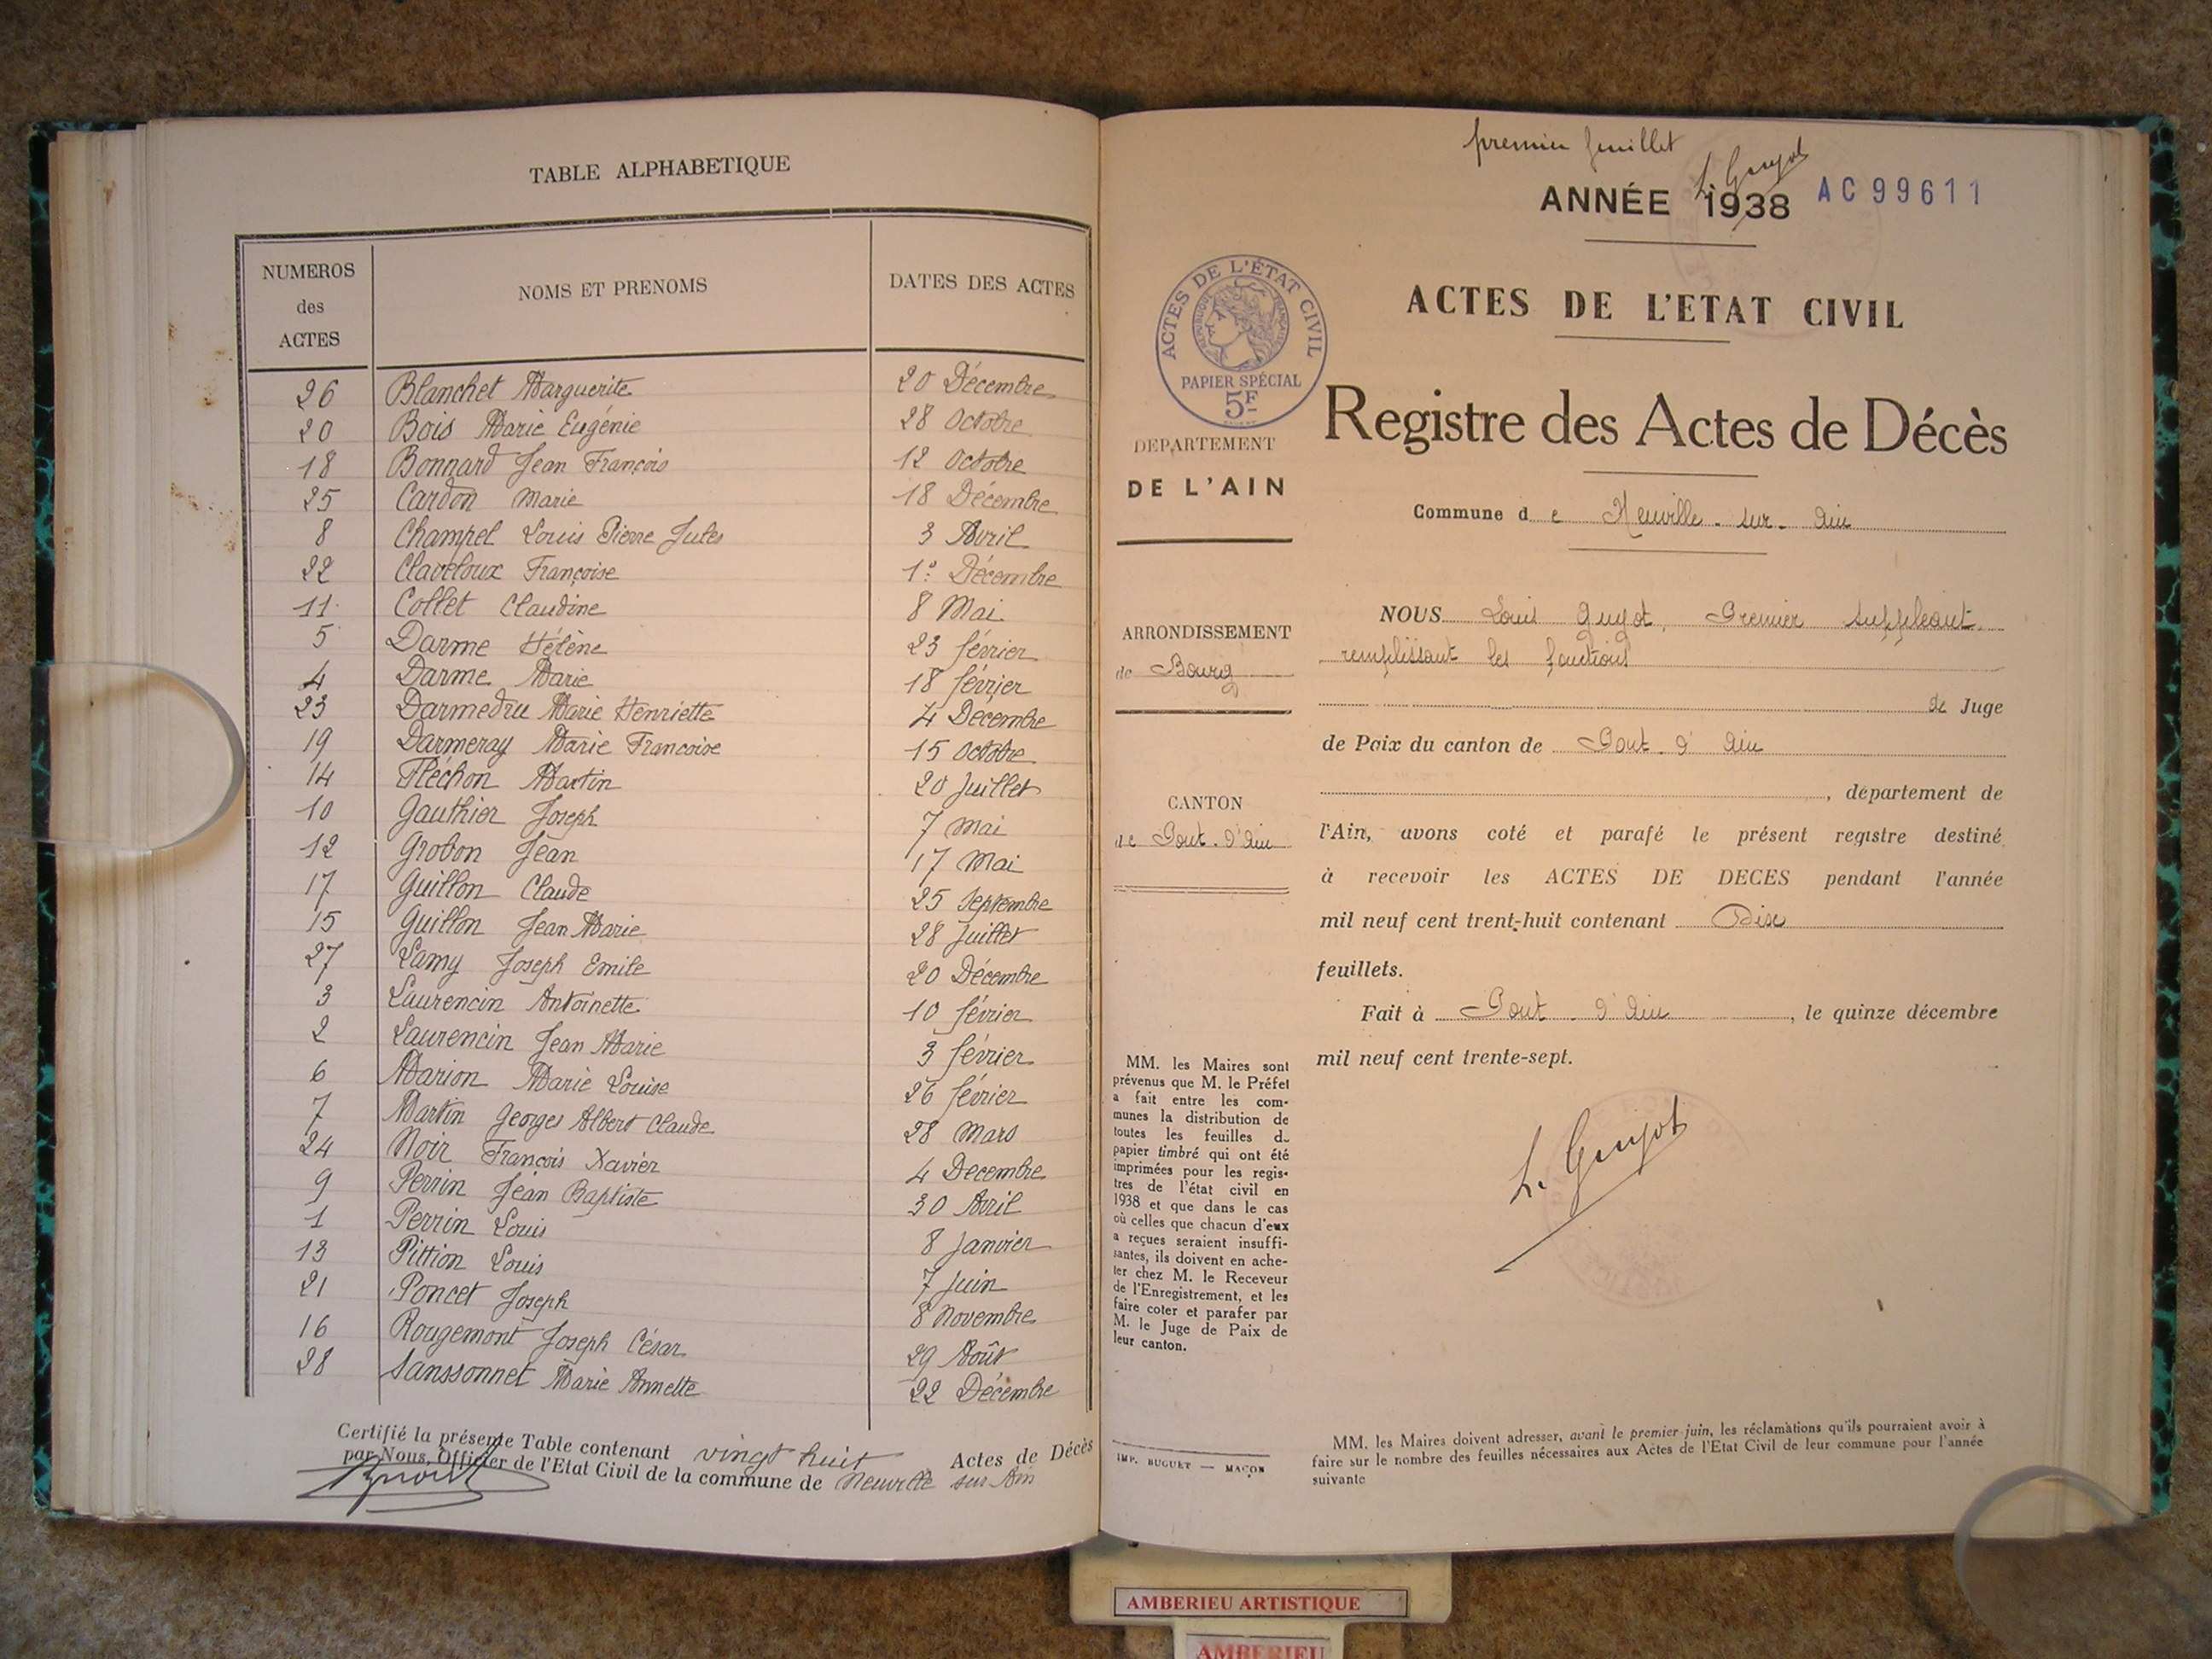 TABLE ALPHABETIQUE
NUMEROS des ACTES | NOMS ET PRENOMS | DATES DES ACTES
26 Blanchet Marguerite 20 Décembre
20 Bois Marie Eugénie 28 Octobre
18 Bonnard Jean François 12 Octobre
25 Cardon Marie 18 Décembre
8 Champel Louis Pierre Jules 3 Avril
22 Claveloux Françoise 1° Décembre
11 Collet Claudine 8 Mai
5 Darme Hélène 23 février
4 Darme Marie 18 février
23 Darmedru Marie Henriette 4 Décembre
19 Darmeray Marie Francoise 15 Octobre
14 Fléchon Martin 20 Juillet
10 Gauthier Joseph 7 Mai
12 Grobon Jean 17 Mai
17 Guillon Claude 25 Septembre
15 Guillon Jean Marie 28 Juillet
27 Lamy Joseph Emile 20 Décembre
3 Laurencin Antoinette 10 février
2 Laurencin Jean Marie 3 février
6 Marion Marie Louise 26 février
7 Martin Georges Albert Claude 28 Mars
24 Noir François Xavier 4 Decembre
9 Perrin Jean Baptiste 30 Avril
1 Perrin Louis 8 Janvier
13 Pittion Louis 7 Juin
21 Poncet Joseph 8 Novembre
16 Rougemont Joseph César 29 Août
28 Sanssonnet Marie Annette 22 Décembre
Certifié la présente Table contenant vingt huit Actes de Décès
par Nous, Officier de l'Etat Civil de la commune de Neuville sur Ain
premier feuillet
L. Guyot
ANNÉE 1938 AC99611
ACTES DE L'ETAT CIVIL
ACTES DE L'ÉTAT CIVIL
RÉPUBLIQUE FRANÇAISE
PAPIER SPÉCIAL
5F
Registre des Actes de Décès
DEPARTEMENT
DE L'AIN
Commune de Neuville-sur-Ain
ARRONDISSEMENT
de Bourg
CANTON
de Pont-d'Ain
NOUS Louis Guyot, Premier suppléant
remplissant les fonctions
de Juge
de Paix du canton de Pont-d'Ain
, département de
l'Ain, avons coté et parafé le présent registre destiné
à recevoir les ACTES DE DECES pendant l'année
mil neuf cent trent-huit contenant Dix
feuillets.
Fait à Pont-d'Ain, le quinze décembre
mil neuf cent trente-sept.
L. Guyot
MM. les Maires sont
prévenus que M. le Préfet
a fait entre les com-
munes la distribution de
toutes les feuilles d
papier timbré qui ont été
imprimées pour les regis-
tres de l'état civil en
1938 et que dans le cas
où celles que chacun d'eux
a reçues seraient insuffi-
santes, ils doivent en ache-
ter chez M. le Receveur
de l'Enregistrement, et les
faire coter et parafer par
M. le Juge de Paix de
leur canton.
IMP. BUGUET — MACON
MM. les Maires doivent adresser, avant le premier juin, les réclamations qu'ils pourraient avoir à
faire sur le nombre des feuilles nécessaires aux Actes de l'Etat Civil de leur commune pour l'année
suivante
AMBERIEU ARTISTIQUE
AMBERIEU